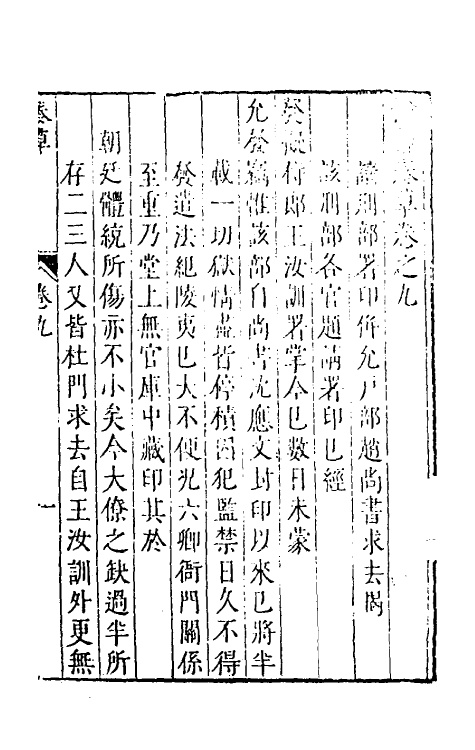 奏草卷之九
請刑部署印併允戶部趙尚書求去揭
該刑部各官題請署印已經
發擬侍郎王汝訓署掌今已數日未蒙
允發竊惟該部自尚書沈應文封印以來已將半
載一切獄情盡皆停積囚犯監禁日久不得
發遣法紀陵夷已大不便況六卿衙門關係
至重乃堂上無官庫中藏印其於
朝廷體統所傷亦不小矣今大僚之缺過半所
存二三人又皆杜門求去自王汝訓外更無
奏草
卷九
一